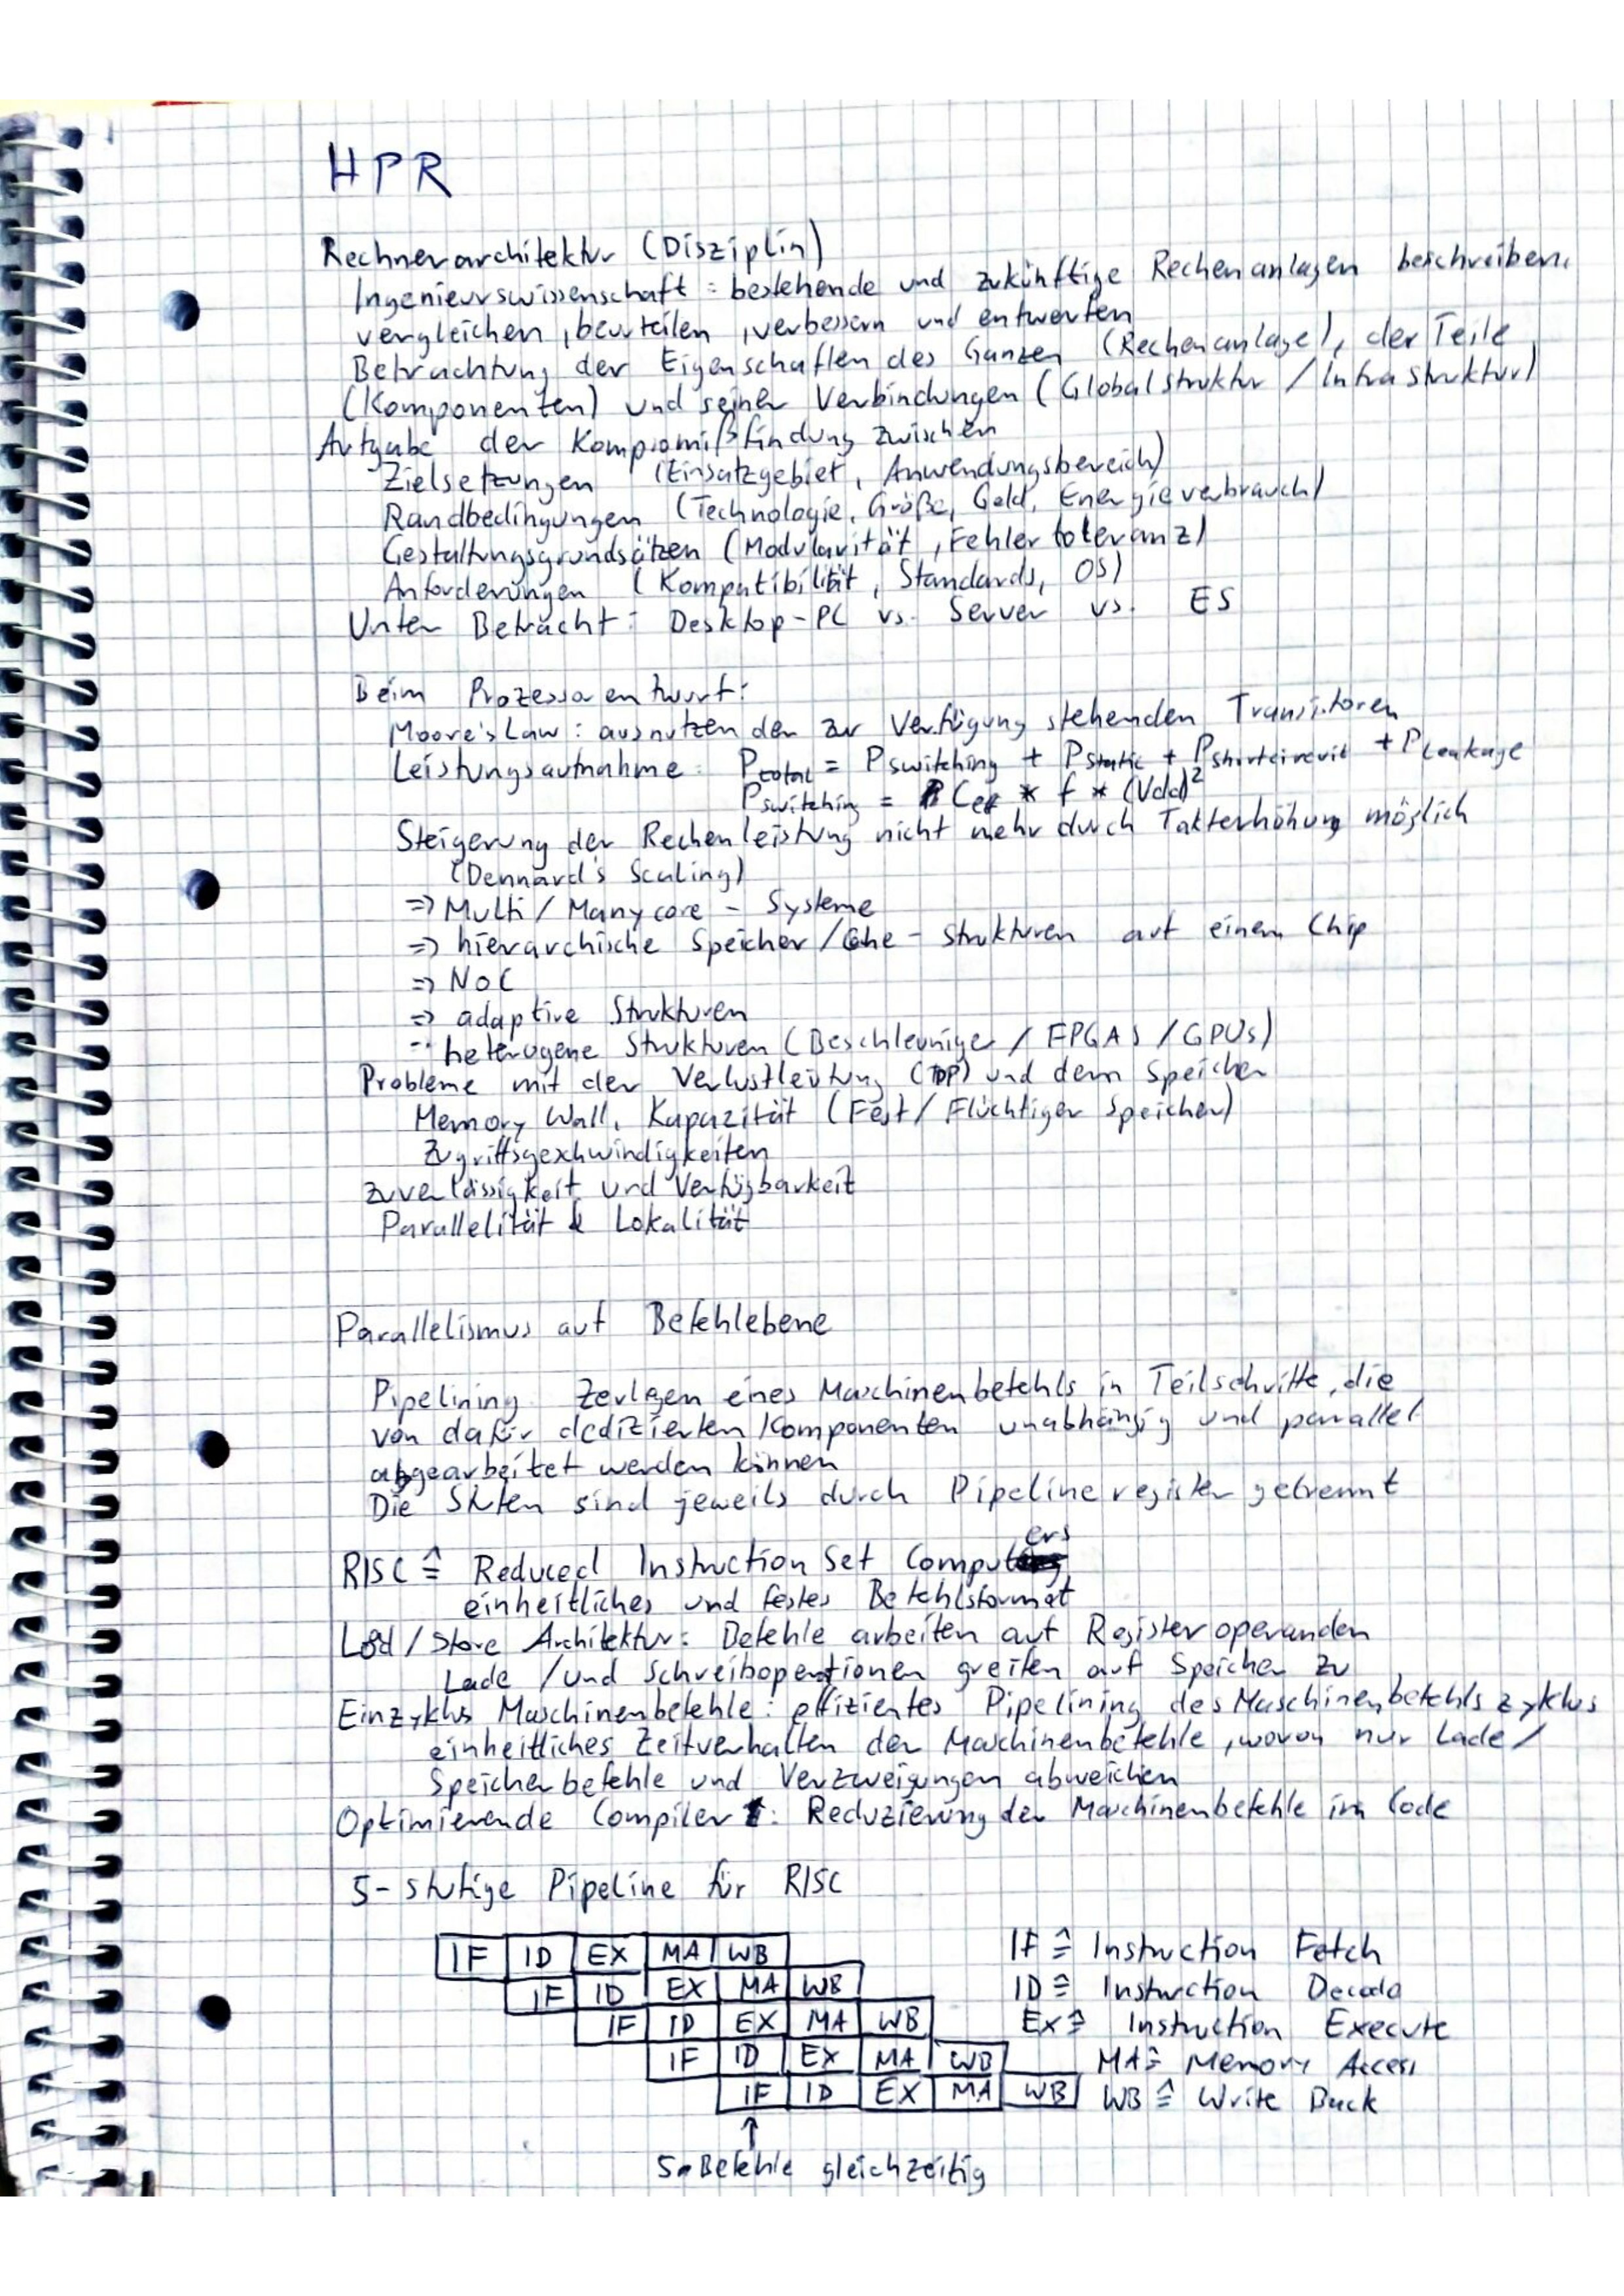 HPR
Rechnerarchitektur (Disziplin)
Ingenieurswissenschaft: bestehende und zukünftige Rechenanlagen beschreiben,
vergleichen, beurteilen, verbessern und entwerfen
Betrachtung der Eigenschaften des Ganzen (Rechenanlage), der Teile
(Komponenten) und seiner Verbindungen (Globalstruktur / Infrastruktur)
Aufgabe der Kompromißfindung zwischen
Zielsetzungen (Einsatzgebiet, Anwendungsbereich)
Randbedingungen (Technologie, Größe, Geld, Energieverbrauch)
Gestaltungsgrundsätzen (Modularität, Fehlertoleranz)
Anforderungen (Kompatibilität, Standards, OS)
Unter Betracht: Desktop-PC vs. Server vs. ES
Beim Prozessorentwurf:
Moore's Law: ausnutzen der zur Verfügung stehenden Transistoren
Leistungsaufnahme: Ptotal = Pswitching + Pstatic + Pshortcircuit + PLeakage
Pswitching = Ceff * f * (Vdd)²
Steigerung der Rechenleistung nicht mehr durch Takterhöhung möglich
(Dennard's Scaling)
=> Multi / Manycore - Systeme
=> hierarchische Speicher / Cache - strukturen auf einem Chip
=> NoC
=> adaptive Strukturen
heterogene Strukturen (Beschleuniger / FPGAs / GPUs)
Probleme mit der Verlustleistung (TDP) und dem Speicher
Memory Wall, Kapazität (Fest / Flüchtiger Speicher)
Zugriffsgeschwindigkeiten
Zuverlässigkeit und Verfügbarkeit
Parallelität & Lokalität
Parallelismus auf Befehlebene
Pipelining Zerlegen eines Maschinenbefehls in Teilschritte, die
von dafür dedizierten Komponenten unabhängig und parallel
abgearbeitet werden können
Die Stufen sind jeweils durch Pipelineregister getrennt
RISC ≙ Reduced Instruction Set Computers
einheitliches und festes Befehlsformat
Load / Store Architektur: Befehle arbeiten auf Registeroperanden
Lade / und Schreiboperationen greifen auf Speicher zu
Einzyklus Maschinenbefehle: effizientes Pipelining des Maschinenbefehlszyklus
einheitliches Zeitverhalten der Maschinenbefehle, wovon nur Lade /
Speicherbefehle und Verzweigungen abweichen
Optimierende Compiler: Reduzierung der Maschinenbefehle im Code
5-stufige Pipeline für RISC
IF ID EX MA WB IF ≙ Instruction Fetch
IF ID EX MA WB ID ≙ Instruction Decode
IF ID EX MA WB EX ≙ Instruction Execute
IF ID EX MA WB MA ≙ Memory Access
IF ID EX MA WB WB ≙ Write Back
↑
5 Befehle gleichzeitig